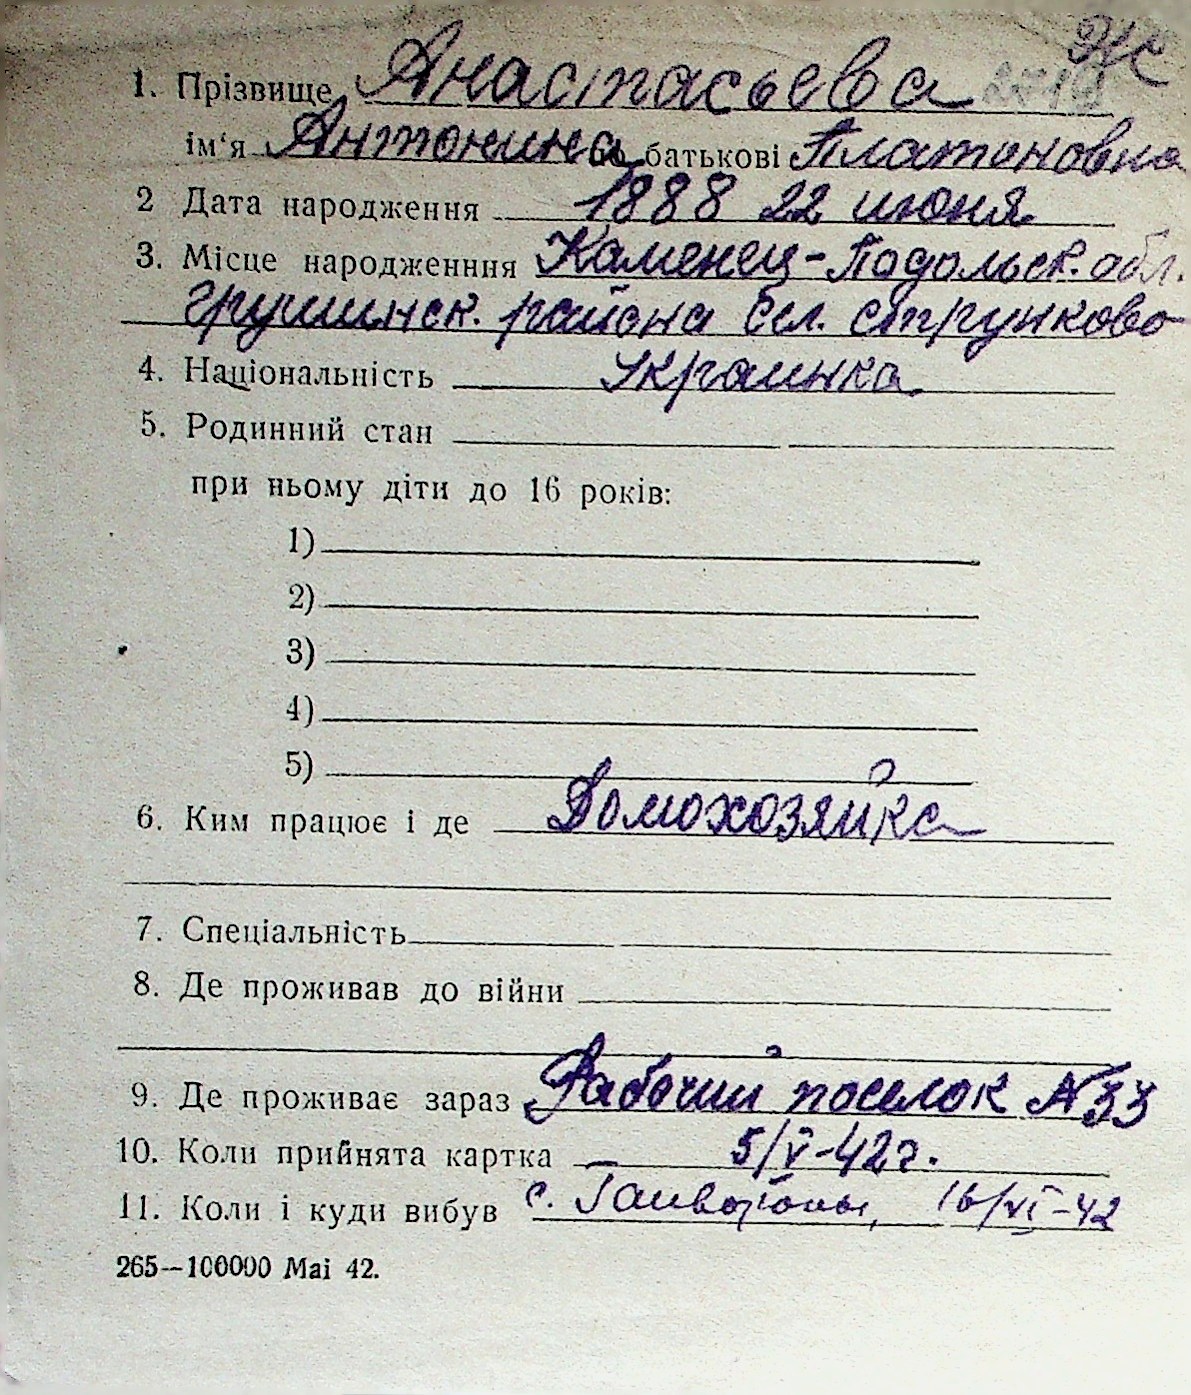 Жс
1. Прізвище Анастасьева
ім‘я Антонина по батькові Платоновна
2 Дата народження 1888 22 июня
3. Місце народженння Каменец-Подольск. обл.
района сел. Струнково
4. Національність Украинка
5. Родинний стан
при ньому діти до 16 років:
1)
2)
3)
4)
5)
6. Ким працює і де Домохозяйка
7. Спеціальність
8. Де проживав до війни
9. Де проживає зараз Рабочий поселок №33
10. Коли прийнята картка 5/V-42г.
11. Коли і куди вибув с. 16/VI-42
265—100000 Mai 42.